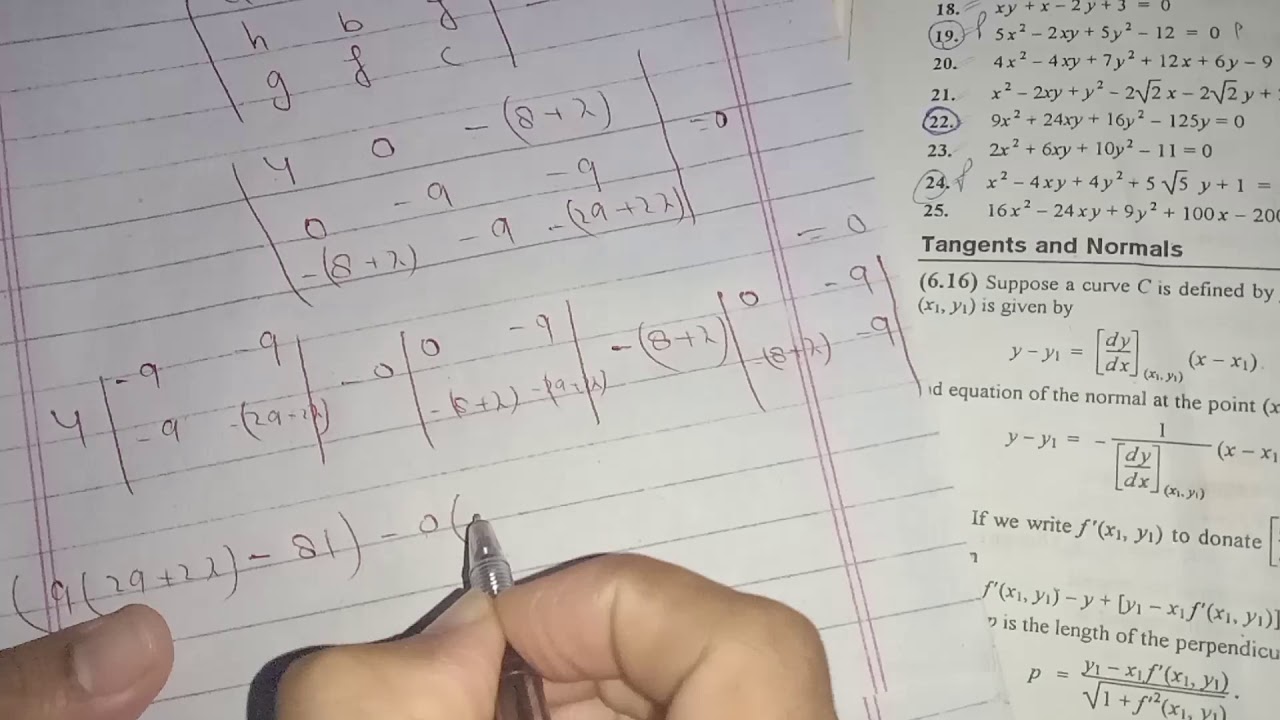 h b f
g f c
4 0 -(8+λ)
0 -9 -9 =0
-(8+λ) -9 -(29+2λ)
= 0
4 | -9 -9 | - 0 | 0 -9 | -(8+λ) | 0 -9 |
| -9 -(29-2λ) | | -(8+λ) -(29+2λ) | | -(8+λ) -9 |
(9(29+2λ) - 81) - 0(
18. xy + x − 2y + 3 = 0
19. 5x² − 2xy + 5y² − 12 = 0
20. 4x² − 4xy + 7y² + 12x + 6y − 9
21. x² − 2xy + y² − 2√2 x − 2√2 y +
22. 9x² + 24xy + 16y² − 125y = 0
23. 2x² + 6xy + 10y² − 11 = 0
24. x² − 4xy + 4y² + 5√5 y + 1 =
25. 16x² − 24xy + 9y² + 100x − 200
Tangents and Normals
(6.16) Suppose a curve C is defined by
(x₁, y₁) is given by
y − y₁ = [dy/dx](x₁, y₁) (x − x₁).
equation of the normal at the point (x
y − y₁ = − 1/[dy/dx](x₁, y₁) (x − x₁
If we write f′(x₁, y₁) to donate [
f′(x₁, y₁) − y + [y₁ − x₁f′(x₁, y₁)]
p is the length of the perpendicu
p = y₁ − x₁f′(x₁, y₁) / √1 + f′²(x₁, y₁) .